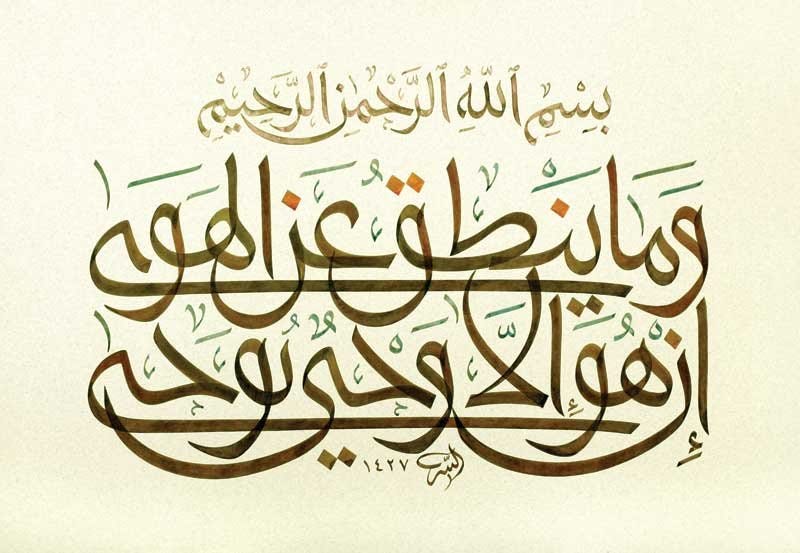 بِسْمِ ٱللّٰهِ ٱلرَّحْمٰنِ ٱلرَّحِيمِ
وَمَا يَنطِقُ عَنِ الهَوَىٰ
إِنْ هُوَ إِلَّا وَحْيٌ يُوحَىٰ
١٤٢٧